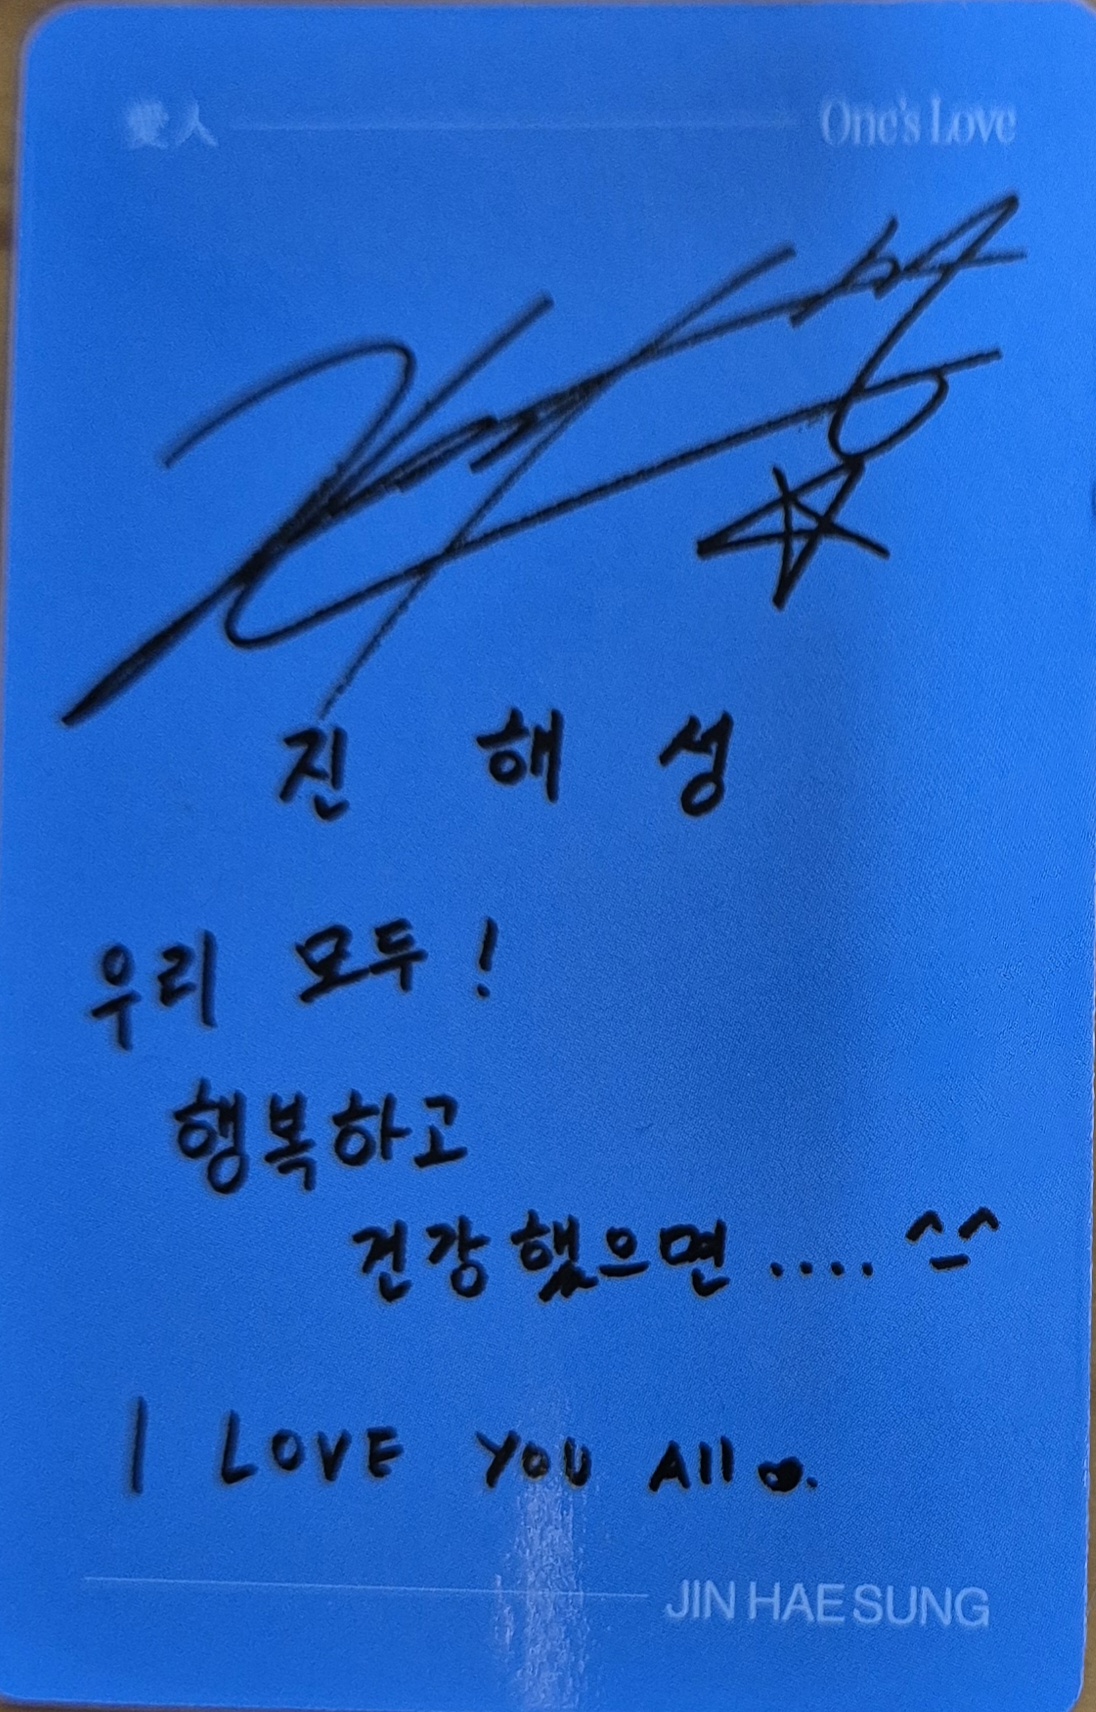 愛人 One's Love
진 해 성
우리 모두!
행복하고
건강했으면.... ^-^
I LOVE YOU All
JIN HAE SUNG